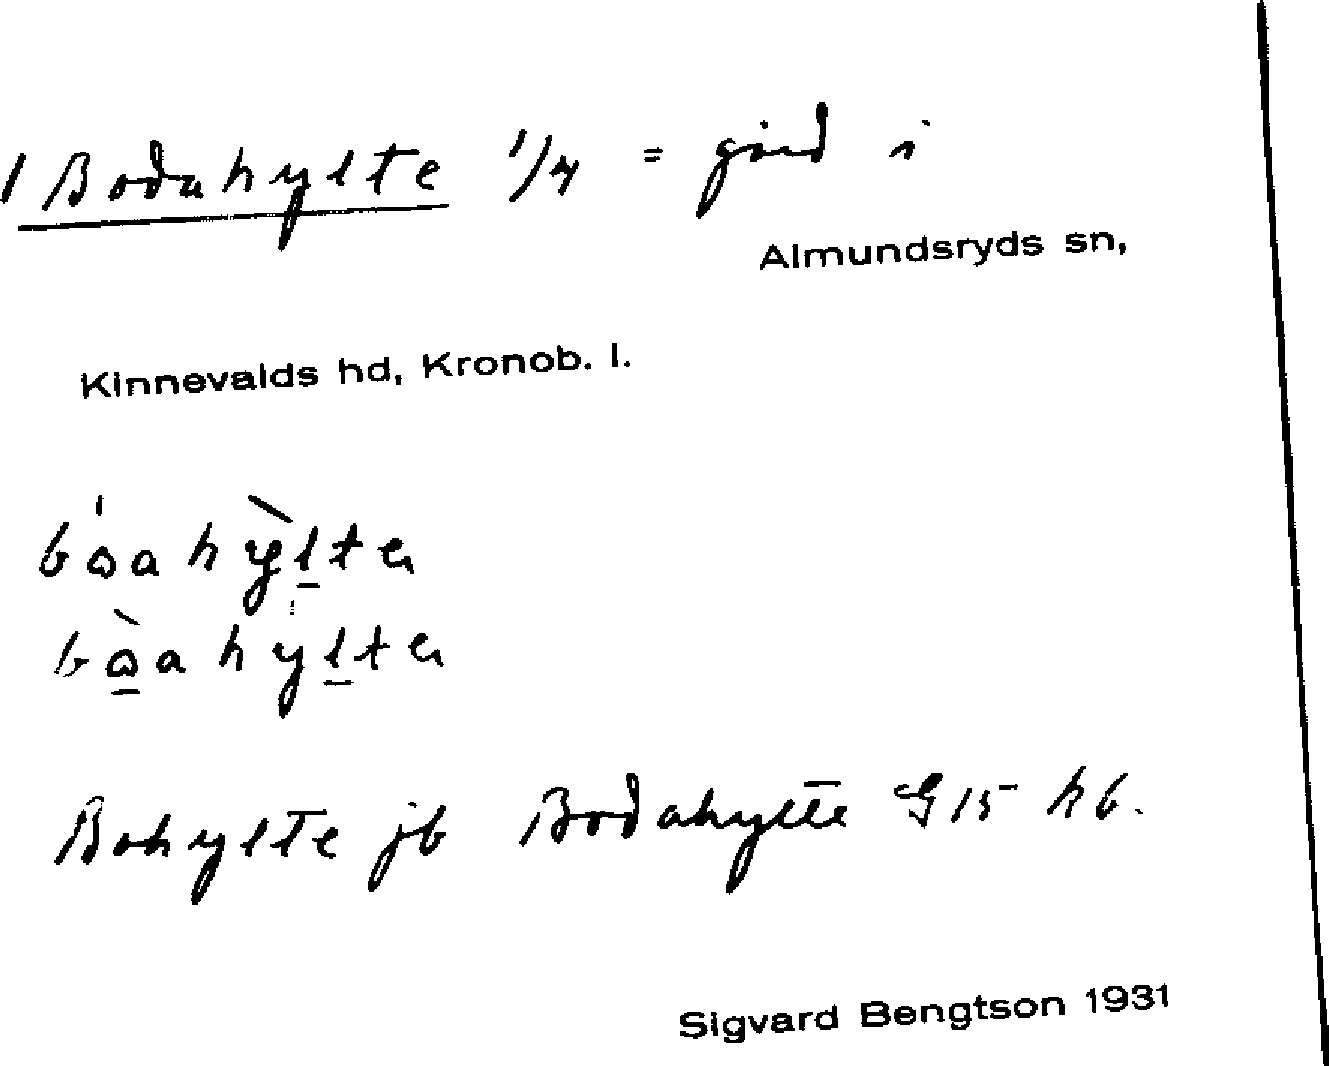 1 Bodahylte 1/4 = gård i
Almundsryds sn,
Kinnevalds hd, Kronob. l.
bóahỳlta
bòahylta
Bohylte jb Bodahylte G 15 hb.
Sigvard Bengtson 1931